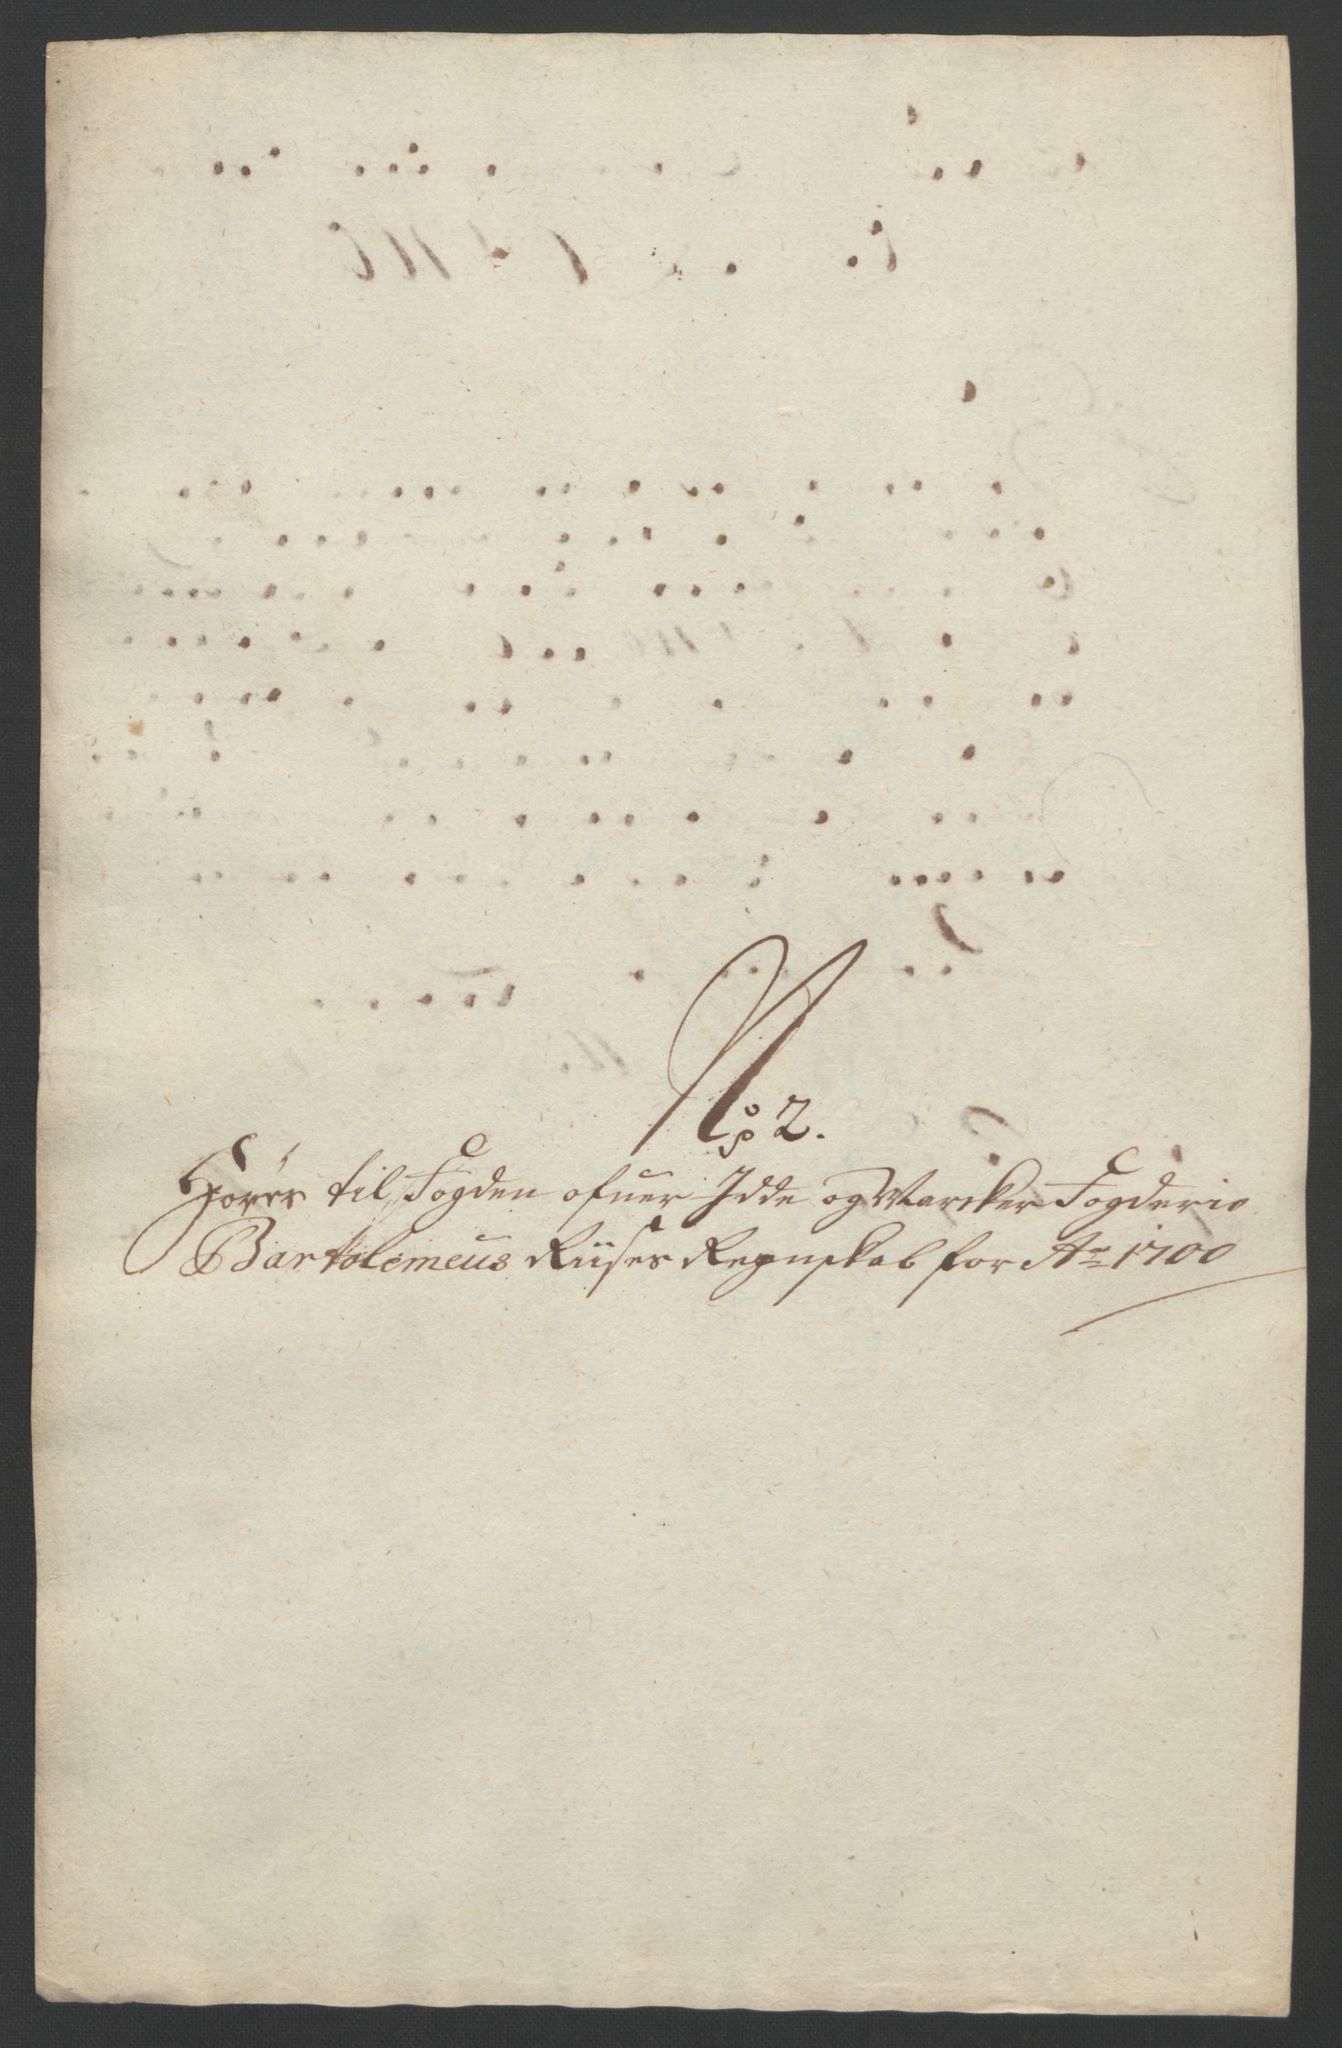 No 2.
Hörer til Fogden ofuer Idde og Marcker Fogderie
Bartolemeus Riises Regnskab for Ao 1700